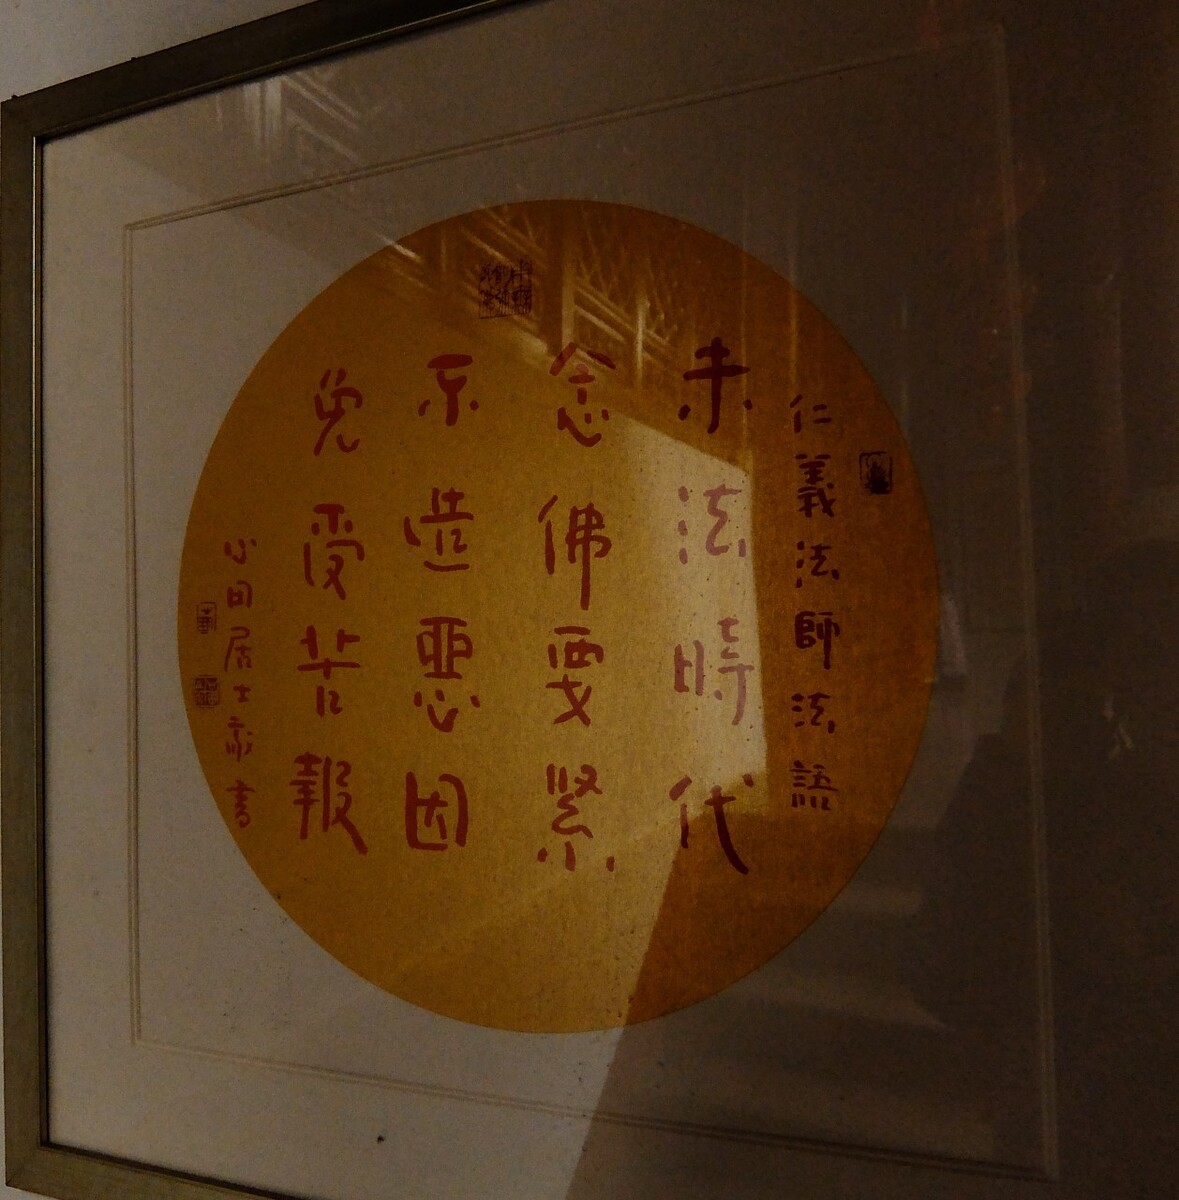 仁義法師法語
末法時代
念佛要緊
不造惡因
免受苦報
心田居士敬書